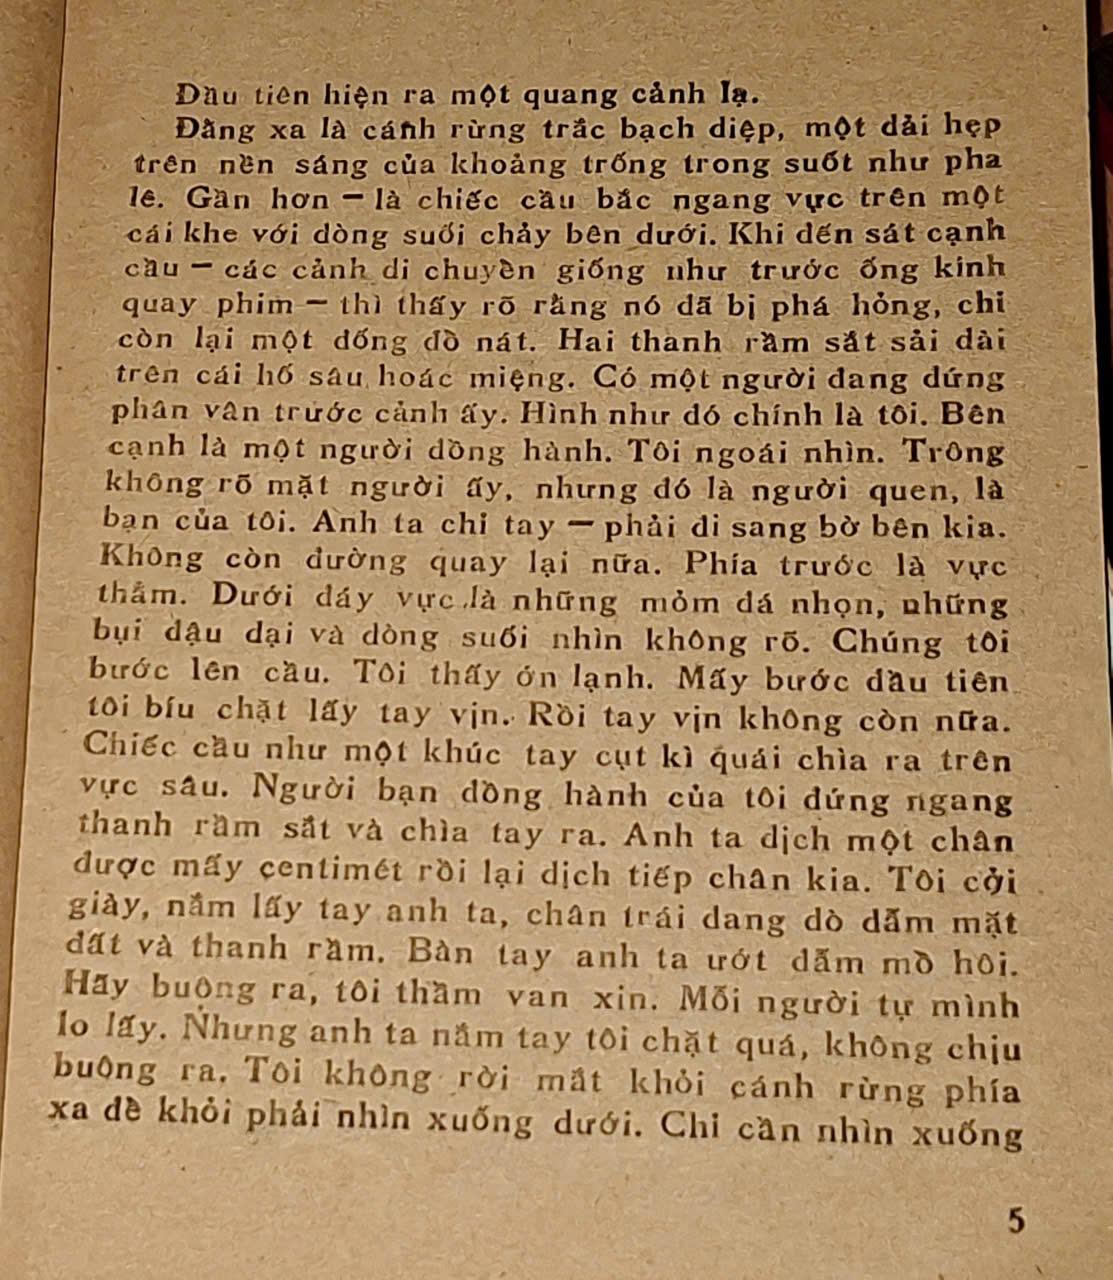 Đầu tiên hiện ra một quang cảnh lạ.
Đằng xa là cánh rừng trắc bạch diệp, một dải hẹp
trên nền sáng của khoảng trống trong suốt như pha
lê. Gần hơn — là chiếc cầu bắc ngang vực trên một
cái khe với dòng suối chảy bên dưới. Khi đến sát cạnh
cầu — các cảnh di chuyển giống như trước ống kính
quay phim — thì thấy rõ rằng nó đã bị phá hỏng, chỉ
còn lại một đống đồ nát. Hai thanh rầm sắt sải dài
trên cái hố sâu hoác miệng. Có một người đang đứng
phân vân trước cảnh ấy. Hình như đó chính là tôi. Bên
cạnh là một người đồng hành. Tôi ngoái nhìn. Trông
không rõ mặt người ấy, nhưng đó là người quen, là
bạn của tôi. Anh ta chỉ tay — phải đi sang bờ bên kia.
Không còn đường quay lại nữa. Phía trước là vực
thẳm. Dưới đáy vực là những mỏm đá nhọn, những
bụi đậu dại và dòng suối nhìn không rõ. Chúng tôi
bước lên cầu. Tôi thấy ớn lạnh. Mấy bước đầu tiên
tôi bíu chặt lấy tay vịn. Rồi tay vịn không còn nữa.
Chiếc cầu như một khúc tay cụt kì quái chìa ra trên
vực sâu. Người bạn đồng hành của tôi đứng ngang
thanh rầm sắt và chìa tay ra. Anh ta dịch một chân
được mấy centimét rồi lại dịch tiếp chân kia. Tôi cởi
giày, nắm lấy tay anh ta, chân trái đang dò dẫm mặt
đất và thanh rầm. Bàn tay anh ta ướt đẫm mồ hôi.
Hãy buông ra, tôi thầm van xin. Mỗi người tự mình
lo lấy. Nhưng anh ta nắm tay tôi chặt quá, không chịu
buông ra. Tôi không rời mắt khỏi cánh rừng phía
xa để khỏi phải nhìn xuống dưới. Chỉ cần nhìn xuống
5